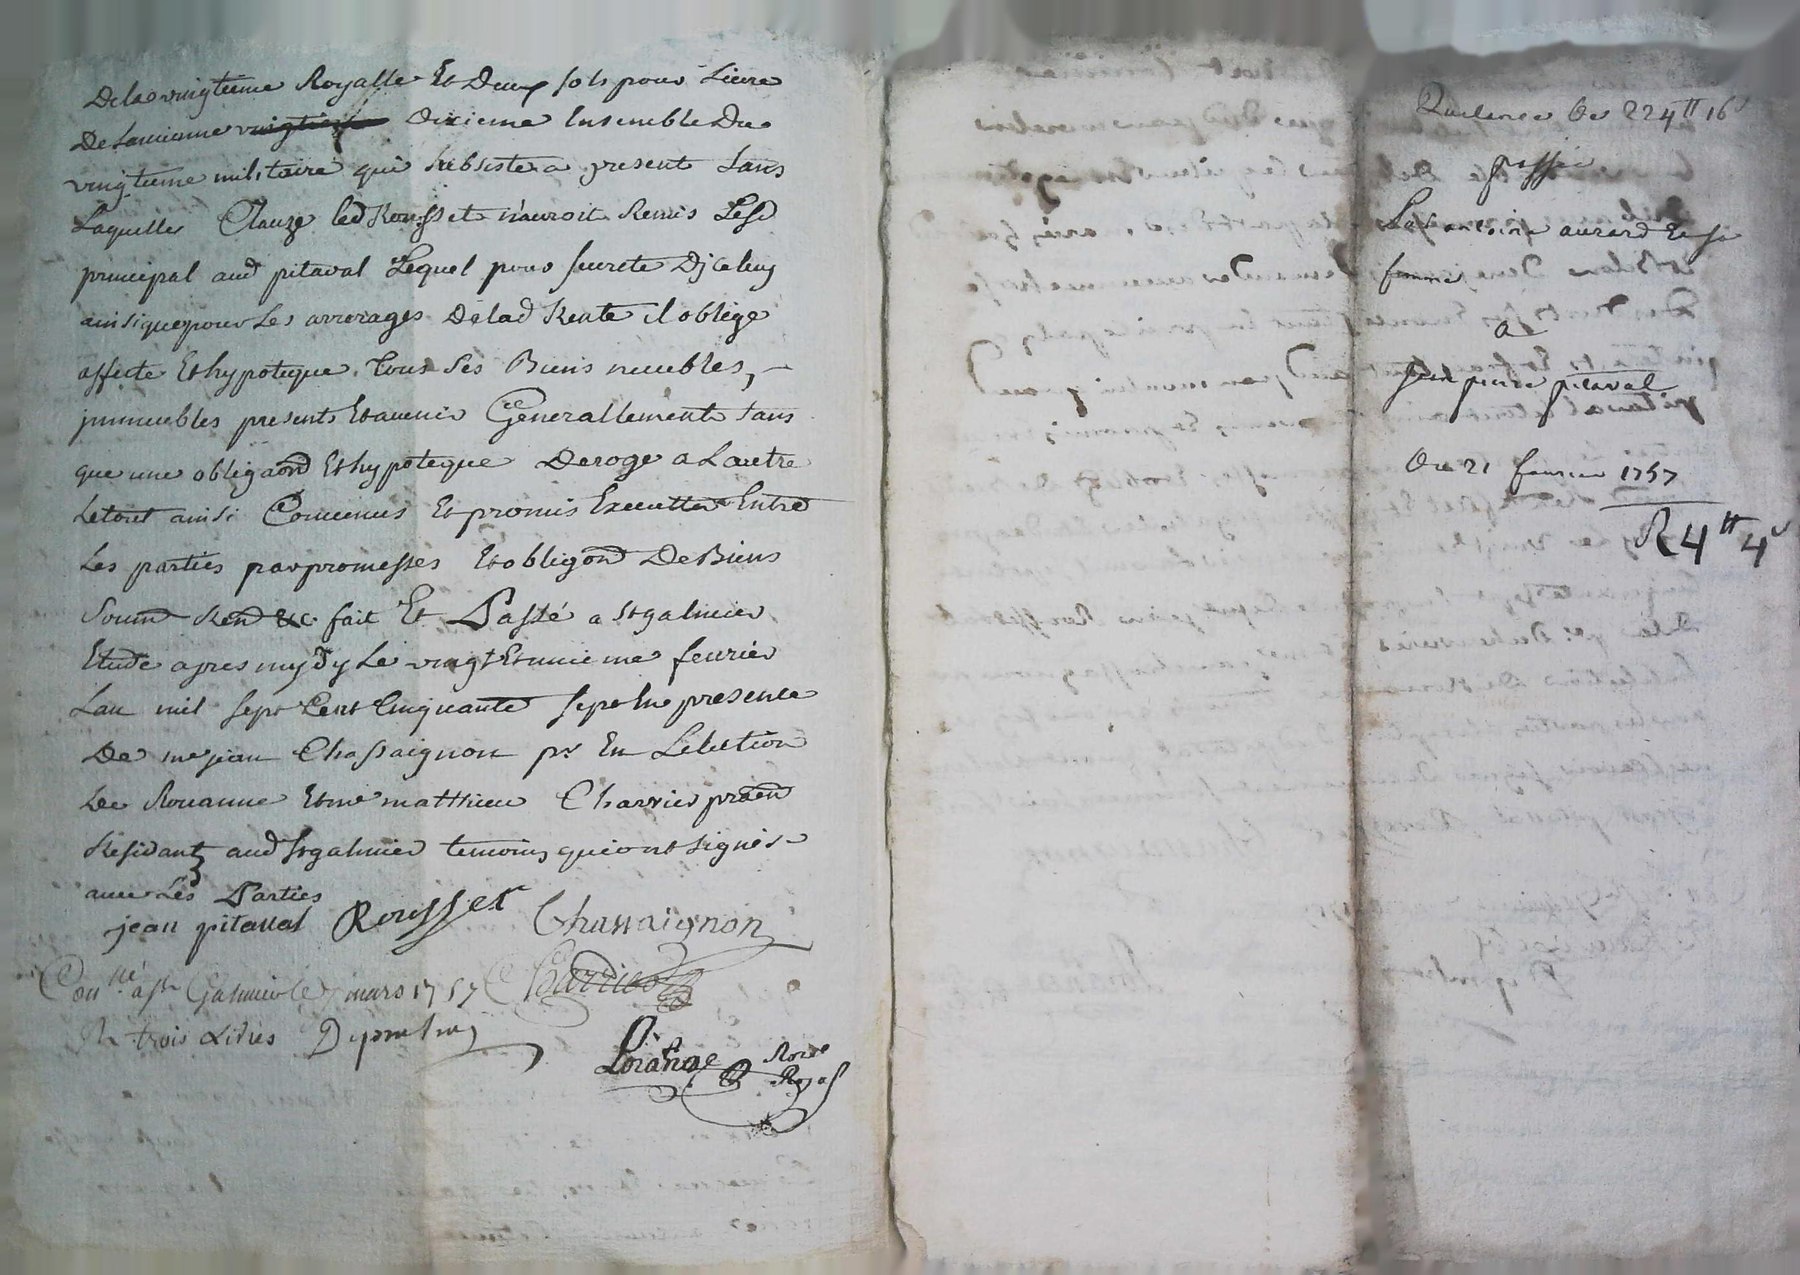 Delavingtieme Royalle Et Deux sols pour Livre
De Lancienne vingtieme dixieme Ensemble Du
vingtieme militaire qui subsiste a present sans
Laquelle Clauze led Rousset n'auroit Remis Lesd
principal aud pitaval Lequel pour seureté Dicelluy
ainsi que pour Les arrerages Delad Rente il oblige
affecte Et hypoteque tous ses Biens meubles,
immeubles presents Et avenir Generallement sans
que une obligaon Et hypoteque Deroge a Lautre
Le tout ainsi Convenus Et promis Executter Entre
Les parties par promesses Et obligaon De Biens
Soumn Renon &c. fait Et Passé a St galmier
Etude apres mydy Le vingt Et unieme fevrier
Lan mil sept Cent Cinquante sept En presence
De me jean Chassaignon pr En Lelection
De Rouanne Et me matthieu Charvier praen
Residants aud St galmier temoins qui ont signés
avec Les Parties
jean pitaval Rousset Chassaignon
Conllé a St Galmier le 7 mars 1757
R trois Livres
Nore
Royal
Quitance De 224tt 16s
passée
Par antoine aurard Et sa
femme
a
jean pierre pitaval
Du 21 fevrier 1757
R 4tt 4s